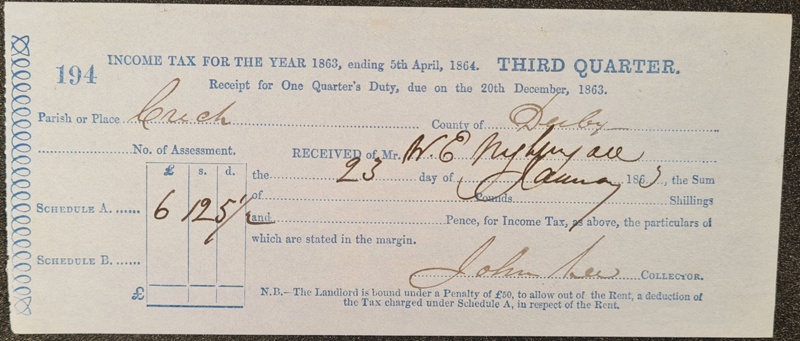 194 INCOME TAX FOR THE YEAR 1863, ending 5th April, 1864. THIRD QUARTER.
Receipt for One Quarter's Duty, due on the 20th December, 1863.
Parish or Place Crich County of Derby
No. of Assessment. RECEIVED of Mr. W. E. Nightingale
£ s. d. the 23 day of January 1863, the Sum
of Pounds Shillings
SCHEDULE A. 6 12 5½ and Pence, for Income Tax, as above, the particulars of
which are stated in the margin.
SCHEDULE B. John Lee COLLECTOR.
£ N.B.—The Landlord is bound under a Penalty of £50, to allow out of the Rent, a deduction of
the Tax charged under Schedule A, in respect of the Rent.